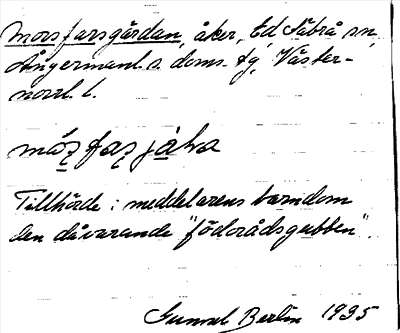 Morsfarsgården, åker, Ed Säbrå sn,
Ångermanl. s. doms. tg, Väster-
norrl. l.
Tillhörde i meddelarens barndom
den dåvarande "födorådsgubben".
Gunnel Berlin 1935